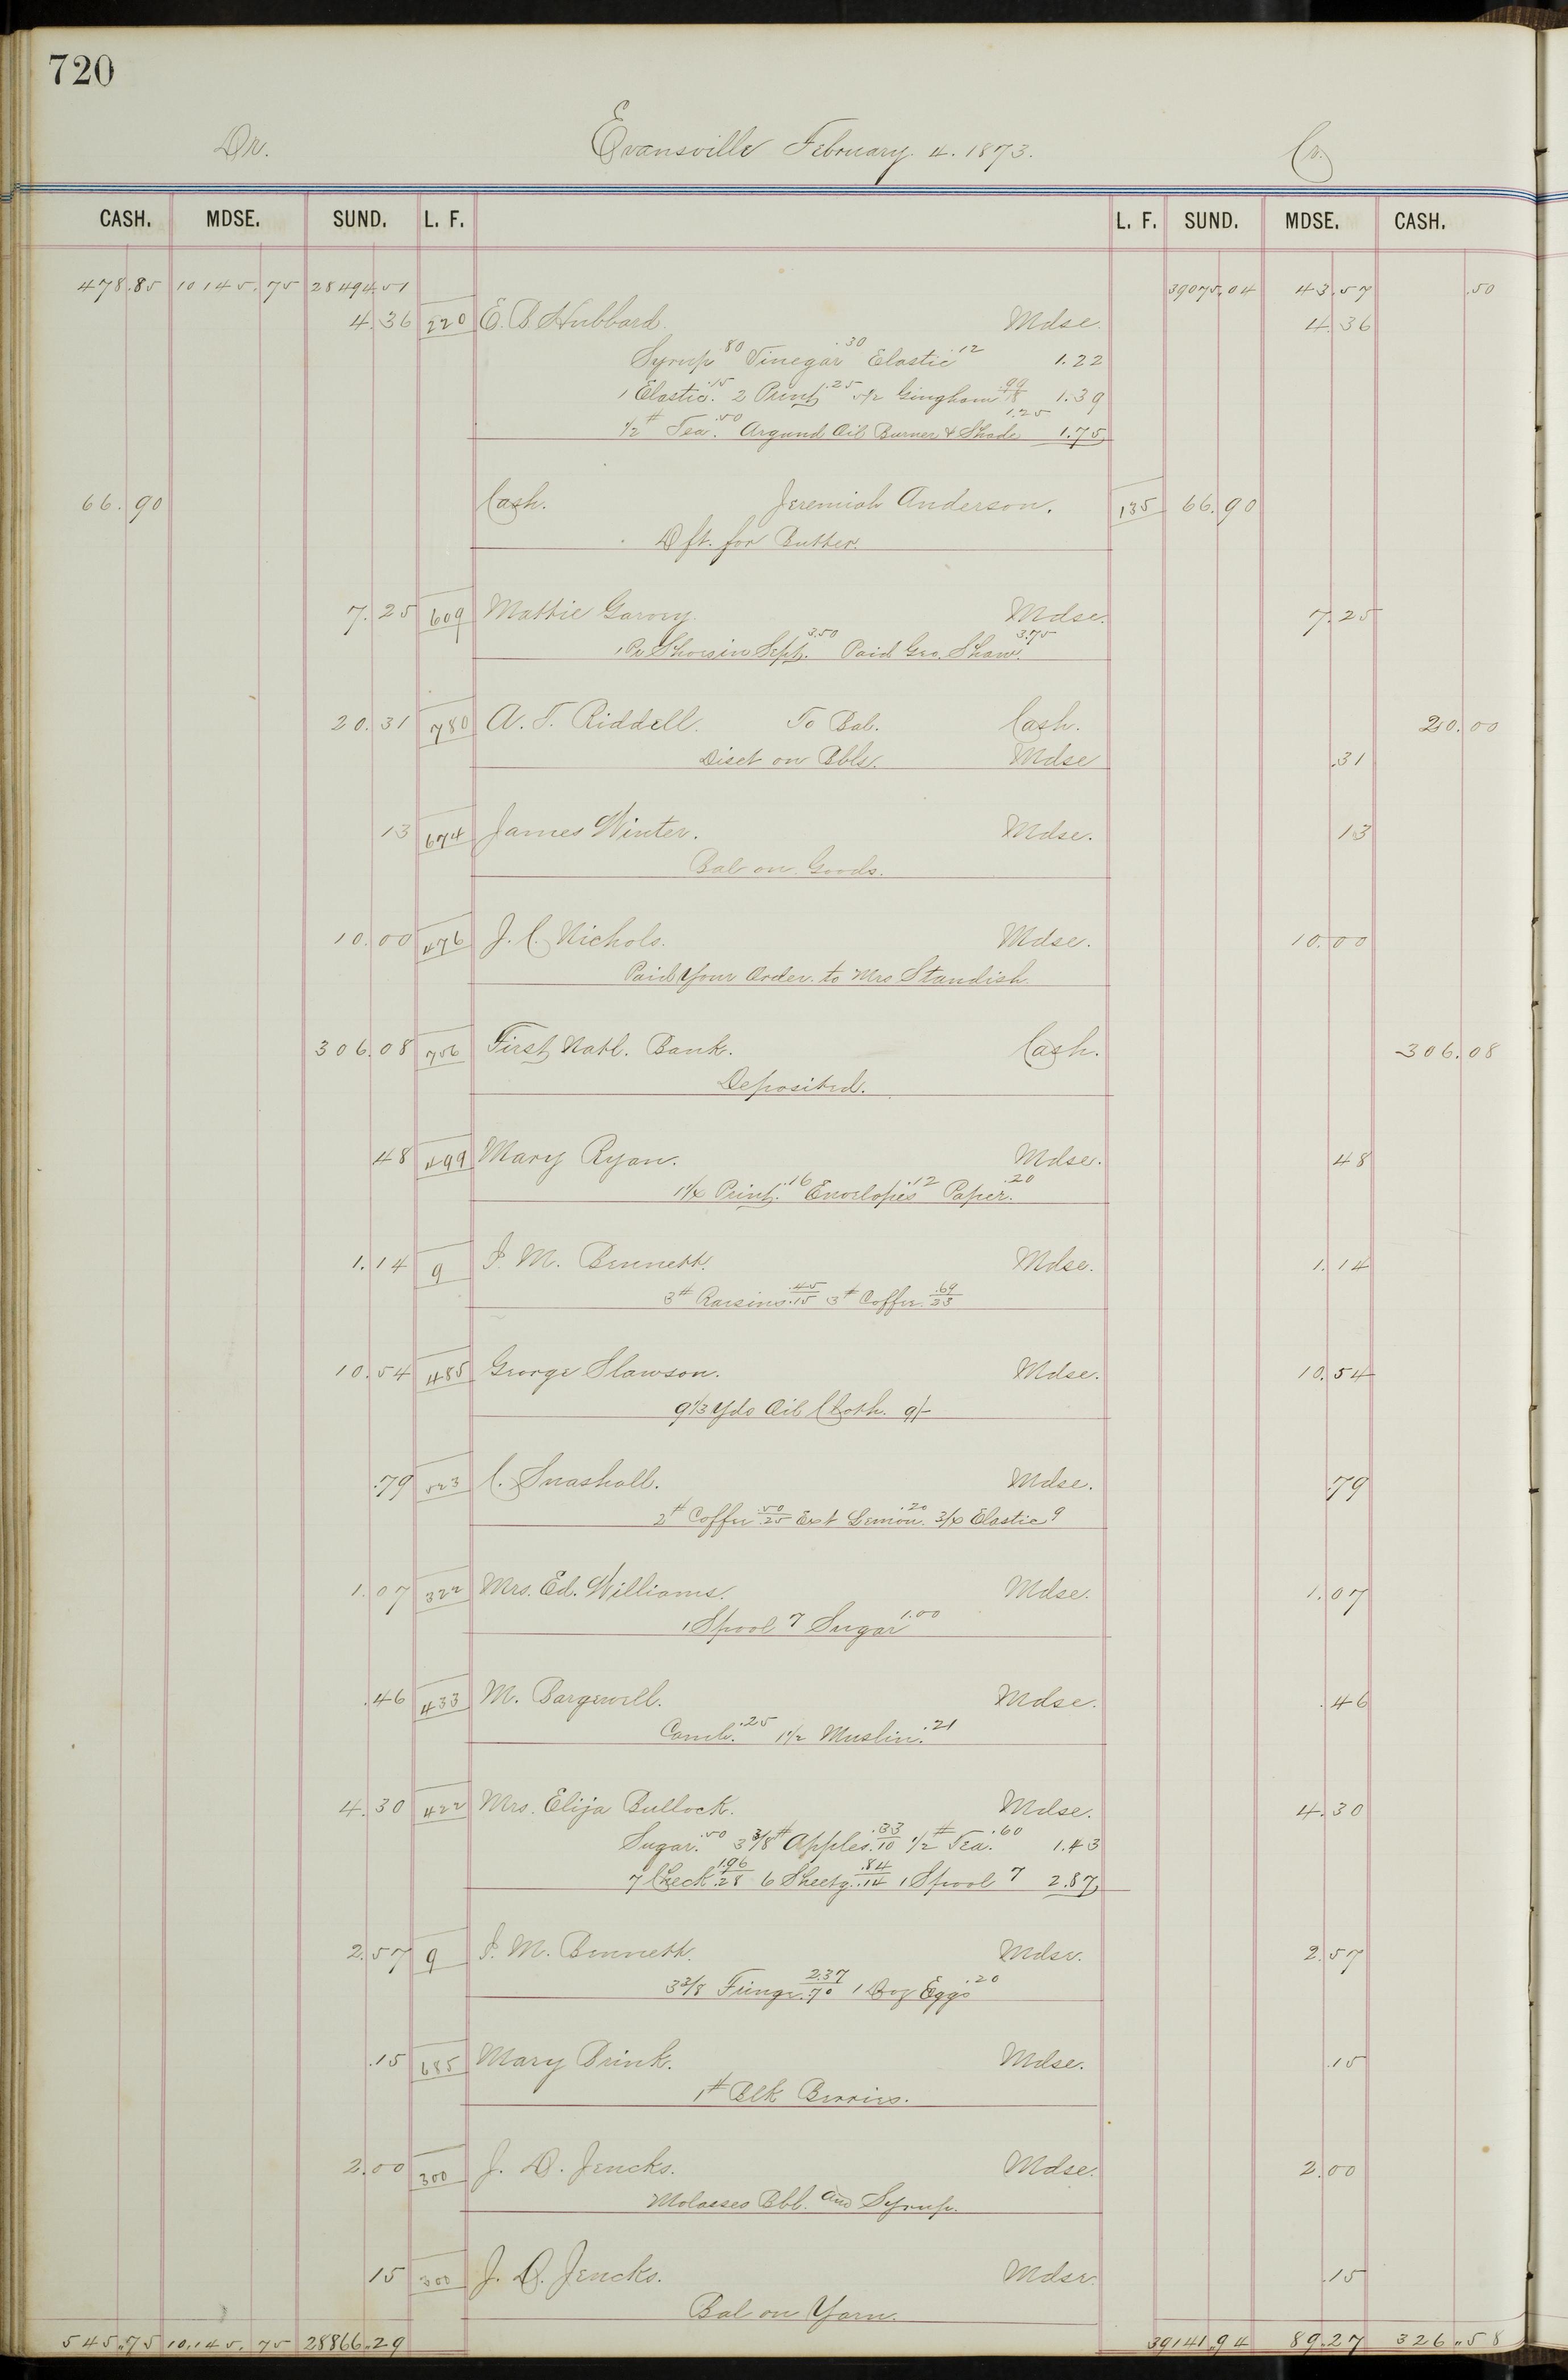 720
Dr. Evansville February. 4. 1873. Cr.
CASH. MDSE. SUND. L. F. L. F. SUND. MDSE. CASH.
478.85 10145.75 28494.51 39075.04 43.57 .50
4.36 220 E. B Hubbard. Mdse. 4.36
Syrup 80 Vinegar .30 Elastic .12 1.22
1 Elastic. .15 2 Print .25 5 1/2 Gingham .99/18 1.39
1/2 # Tea. .50 Argund Oil Burner & Shade 1.25 1.75
66.90 Cash. Jeremiah Anderson. 135 66.90
Dft. for Butter.
7.25 609 Mattie Garvey. Mdse. 7.25
1 Pr Shoes in Sept. 3.50 Paid Geo. Shaw. 3.75
20.31 780 A. T. Riddell. To Bal. Cash. 20.00
Disct on Bbls. Mdse .31
13 674 James Winter. Mdse. 13
Bal on Goods.
10.00 476 J. C. Nichols. Mdse. 10.00
Paid Your Order to Mrs Standish.
306.08 756 First Natl. Bank. Cash. 306.08
Deposited.
48 499 Mary Ryan. Mdse. 48
1 1/4 Print. .16 Envelopes .12 Paper. .20
1.14 9 I. M. Bennett. Mdse. 1.14
3 # Raisins .45/.15 3 # Coffee. .69/23
10.54 485 George Slawson. Mdse. 10.54
9 1/3 Yds Oil Cloth. 9/-
.79 523 C. Snashall. Mdse. .79
2 # Coffee .50/.25 Ext Lemon .20 3/4 Elastic 9
1.07 322 Mrs. Ed. Williams. Mdse. 1.07
1 Spool 7 Sugar 1.00
.46 433 M. Bargewell. Mdse. .46
Comb. .25 1 1/2 Muslin. .21
4.30 422 Mrs. Elija Bullock. Mdse. 4.30
Sugar. .50 3 3/8 # Apples .33/10 1/2 # Tea. .60 1.43
7 Check 1.96/.28 6 Sheetg. .84/.14 1 Spool 7 2.87
2.57 9 I. M. Bennett. Mdse. 2.57
3 3/8 Fringe 2.37/.70 1 Doz Eggs .20
.15 685 Mary Brink. Mdse. .15
1 # Blk Berries.
2.00 300 J. D. Jencks. Mdse. 2.00
Molasses Bbl. and Syrup.
15 300 J. D. Jencks. Mdse. .15
Bal on Yarn.
545.75 10.145.75 28866.29 39141.94 89.27 326.58